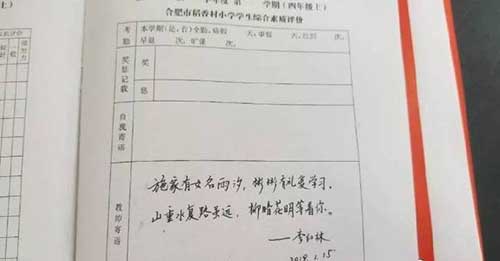 学年度 第 学期 (四年级上)
合肥市稻香村小学学生综合素质评价
考勤
本学期(是、否)全勤,病假 天,事假 天,迟到 次,
早退 次,旷课 次。
奖惩记载
奖
惩
自我寄语
教师寄语
施家有女名雨汐,彬彬有礼爱学习。
山重水复路虽远,柳暗花明等着你。
——李红林
2019.1.15